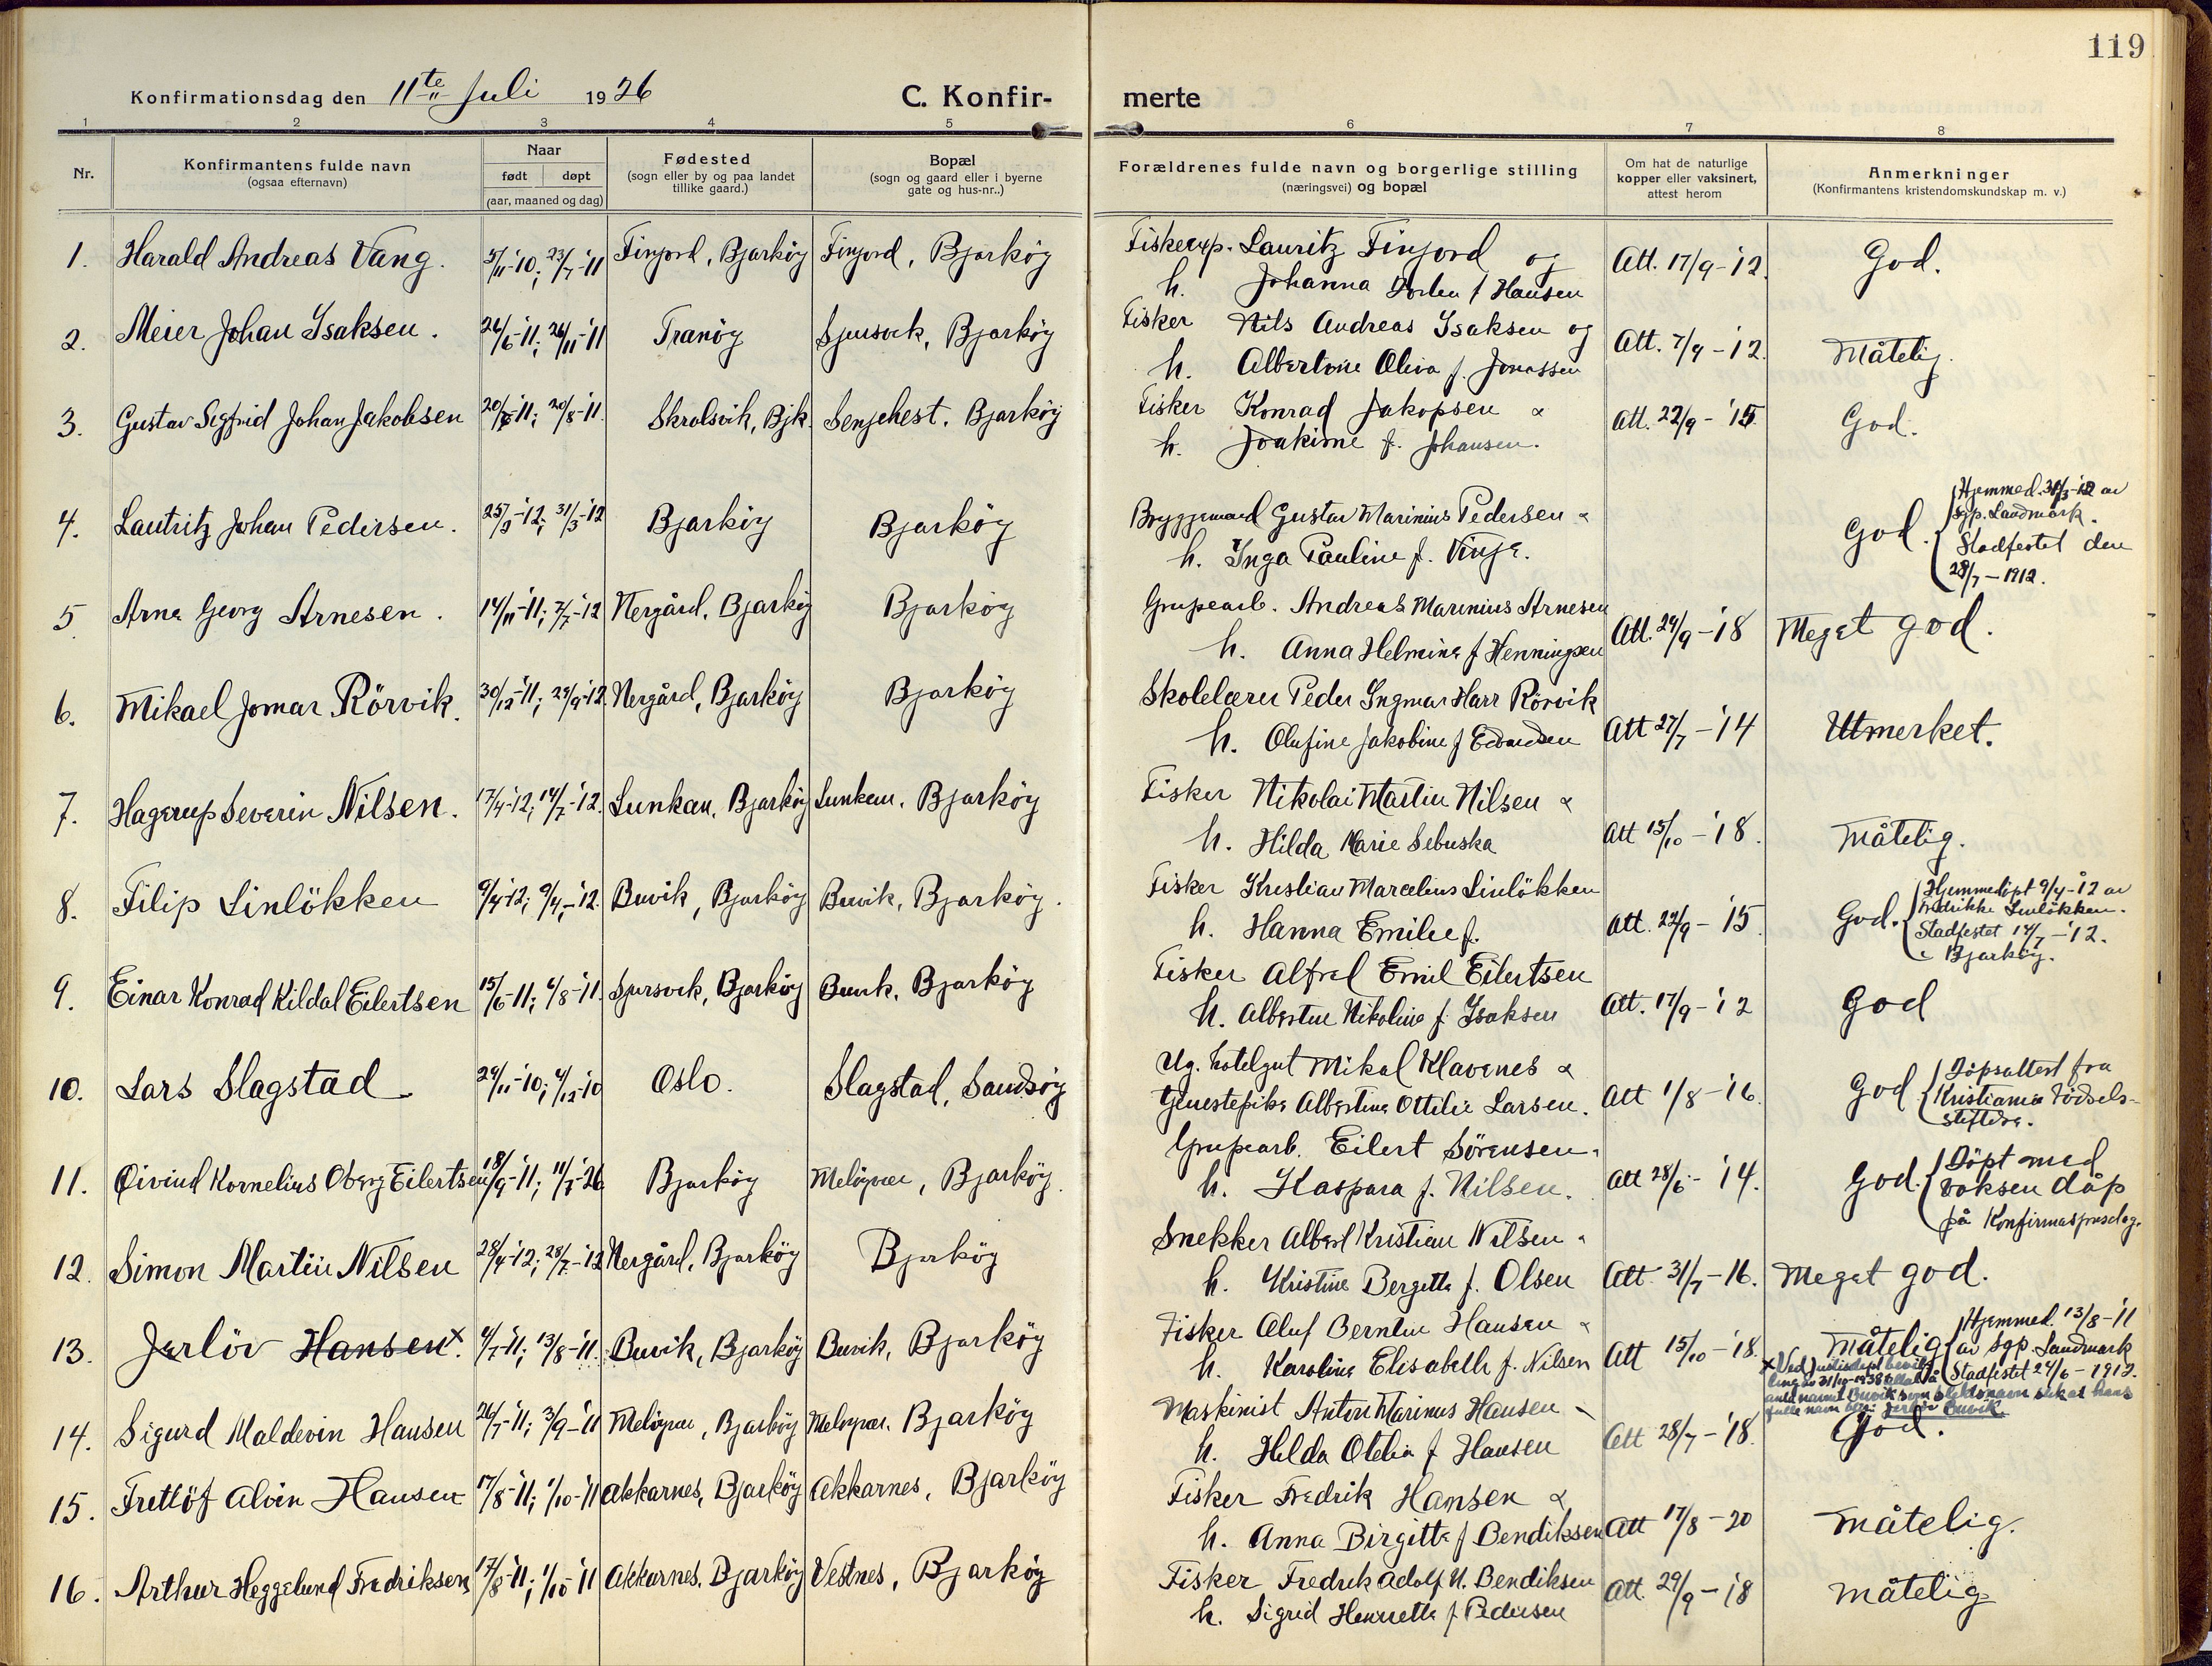 119
Konfirmationsdag den 11te Juli 1926 C. Konfir- merte
1 2 3 4 5 6 7 8
Nr.
Konfirmantens fulde navn
(ogsaa efternavn)
Naar
født døpt
(aar, maaned og dag)
Fødested
(sogn eller by og paa landet
tillike gaard.)
Bopæl
(sogn og gaard eller i byerne
gate og hus-nr..)
Forældrenes fulde navn og borgerlige stilling
(næringsvei) og bopæl
Om hat de naturlige
kopper eller vaksinert,
attest herom
Anmerkninger
(Konfirmantens kristendomskundskap m. v.)
1. Harald Andreas Vang. 5/11-'10; 23/7-'11 Finjord, Bjarköy Finjord, Bjarköy Lauritz Finjord og Att. 17/9-'12. God.
h. Johanna f Hansen
2. Meier Johan Isaksen. 26/6-'11; 26/11-'11 Tranöy Sjursvik, Bjarköy Fisker Nils Andreas Isaksen og Att. 7/9-'12. Måtelig.
h. Albertine Oliva f. Jonassen
3. Gustav Sigfrid Johan Jakobsen '11; 20/8-'11. Skrolsvik, Bjk. Senjehest. Bjarköy Fisker Konrad Jakopsen & Att. 22/9-'15. God.
h. Joakime f. Johansen.
4. Lautritz Johan Pedersen. '12; 31/3-'12 Bjarköy Bjarköy Bryggemand Gustav Marinius Pedersen & God.
h. Inga Pauline f. Vinje.
Hjemmed. 31/3-'12 av
sgp. Landmark.
Stadfestet den
28/7-1912.
5. Arne Georg Arnesen. 14/11-'11; 7/7-'12 Nergård, Bjarköy Bjarköy Grupearb. Andreas Marinius Arnesen Att. 24/9-'18 Meget god.
h. Anna Helmine f Henningsen
6. Mikael Jomar Rörvik. 30/12-'11; 29/9-'12. Nergård, Bjarköy Bjarköy Skolelærer Peder Ingmar Harr Rörvik Att 27/7-'14 Utmerket.
h. Olufine Jakobine f Edvardsen
7. Hagerup Severin Nilsen. 17/4-'12; 14/7-'12. Lunkan, Bjarköy Lunkan, Bjarköy Fisker Nikolai Martin Nilsen & Att 15/10-'18. Måtelig.
h. Hilda Marie Sebuska
8. Filip Linlökken 9/4-'12; 9/4-'12. Buvik, Bjarköy Buvik, Bjarköy. Fisker Kristian Marcelius Linlökken Att. 22/9-'15. God.
h. Hanna Emilie f.
Hjemmedöpt 9/4-'12 av
Fredrikke Linlökken.
Stadfestet 14/7-'12.
i Bjarköy.
9. Einar Konrad Kildal Eilertsen 15/6-'11; 6/8-'11. Sjursvik, Bjarköy Buvik, Bjarköy Fisker Alfred Emil Eilertsen Att. 17/9-'12 God
h. Albertine Nikoline f. Isaksen
10. Lars Slagstad 24/11-'10; 4/12-'10 Oslo. Slagstad, Sandsöy Ug. hotelgut Mikal Klavenes & Att 1/8-'16. God
tjenestepike Albertine Ottilie Larsen.
Döpsattest fra
Kristiania Födsels-
stiftelse.
11. Öivind Kornelius Oberg Eilertsen 18/9-'11; 11/7-'26 Bjarköy Melöyvær, Bjarköy. Grupearb. Eilert Sörensen & Att 28/6-'14. God.
h. Kaspara f. Nilsen.
Döpt med
voksen dåp
på Konfirmasjonsdag.
12. Simon Martin Nilsen 28/4-'12; 28/7-'12 Nergård, Bjarköy Bjarköy Snekker Albert Kristian Nilsen & Att. 31/7-16. Meget god.
h. Kristine Bergette f. Olsen
13. Jerlöv Hansen x. 4/7-'11; 13/8-'11. Buvik, Bjarköy Buvik, Bjarköy Fisker Oluf Berntin Hansen & Att 15/10-'18. Måtelig
h. Karoline Elisabeth f. Nilsen
Hjemmed. 13/8-'11
av sgp. Landmark
Stadfestet 24/6-1912.
x Ved Justisdept. bevil-
ling av 31/10-1938 tillatt å
anta navnet Buvik som slektsnavn slik at hans
fulle navn blir: Jerlöv Buvik
14. Sigurd Maldevin Hansen 26/7-'11; 3/9-'11 Melöyvær, Bjarköy Melöyvær, Bjarköy Maskinist Anton Marinus Hansen Att 28/7-'18. God.
h. Helda Otelia f Hansen
15. Frettöf Alvin Hansen 17/8-'11; 1/10-'11 Akkarnes, Bjarköy Akkarnes, Bjarköy Fisker Fredrik Hansen & Att 17/8-20 Måtelig.
h. Anna Birgitte f Bendiksen
16. Arthur Heggelund Fredriksen 17/8-'11; 1/10-'11 Akkarnes, Bjarköy Vestnes, Bjarköy Fisker Fredrik Adolf N. Bendiksen Att. 29/9-'18 Måtelig
h. Sigrid Henriette f Pedersen